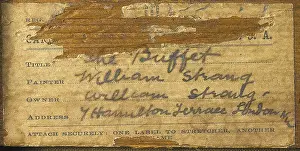 S. A.
TITLE The Buffet
PAINTER William Strang
OWNER William Strang
ADDRESS 7 Hamilton Terrace London
ATTACH SECURELY: ONE LABEL TO STRETCHER, ANOTHER